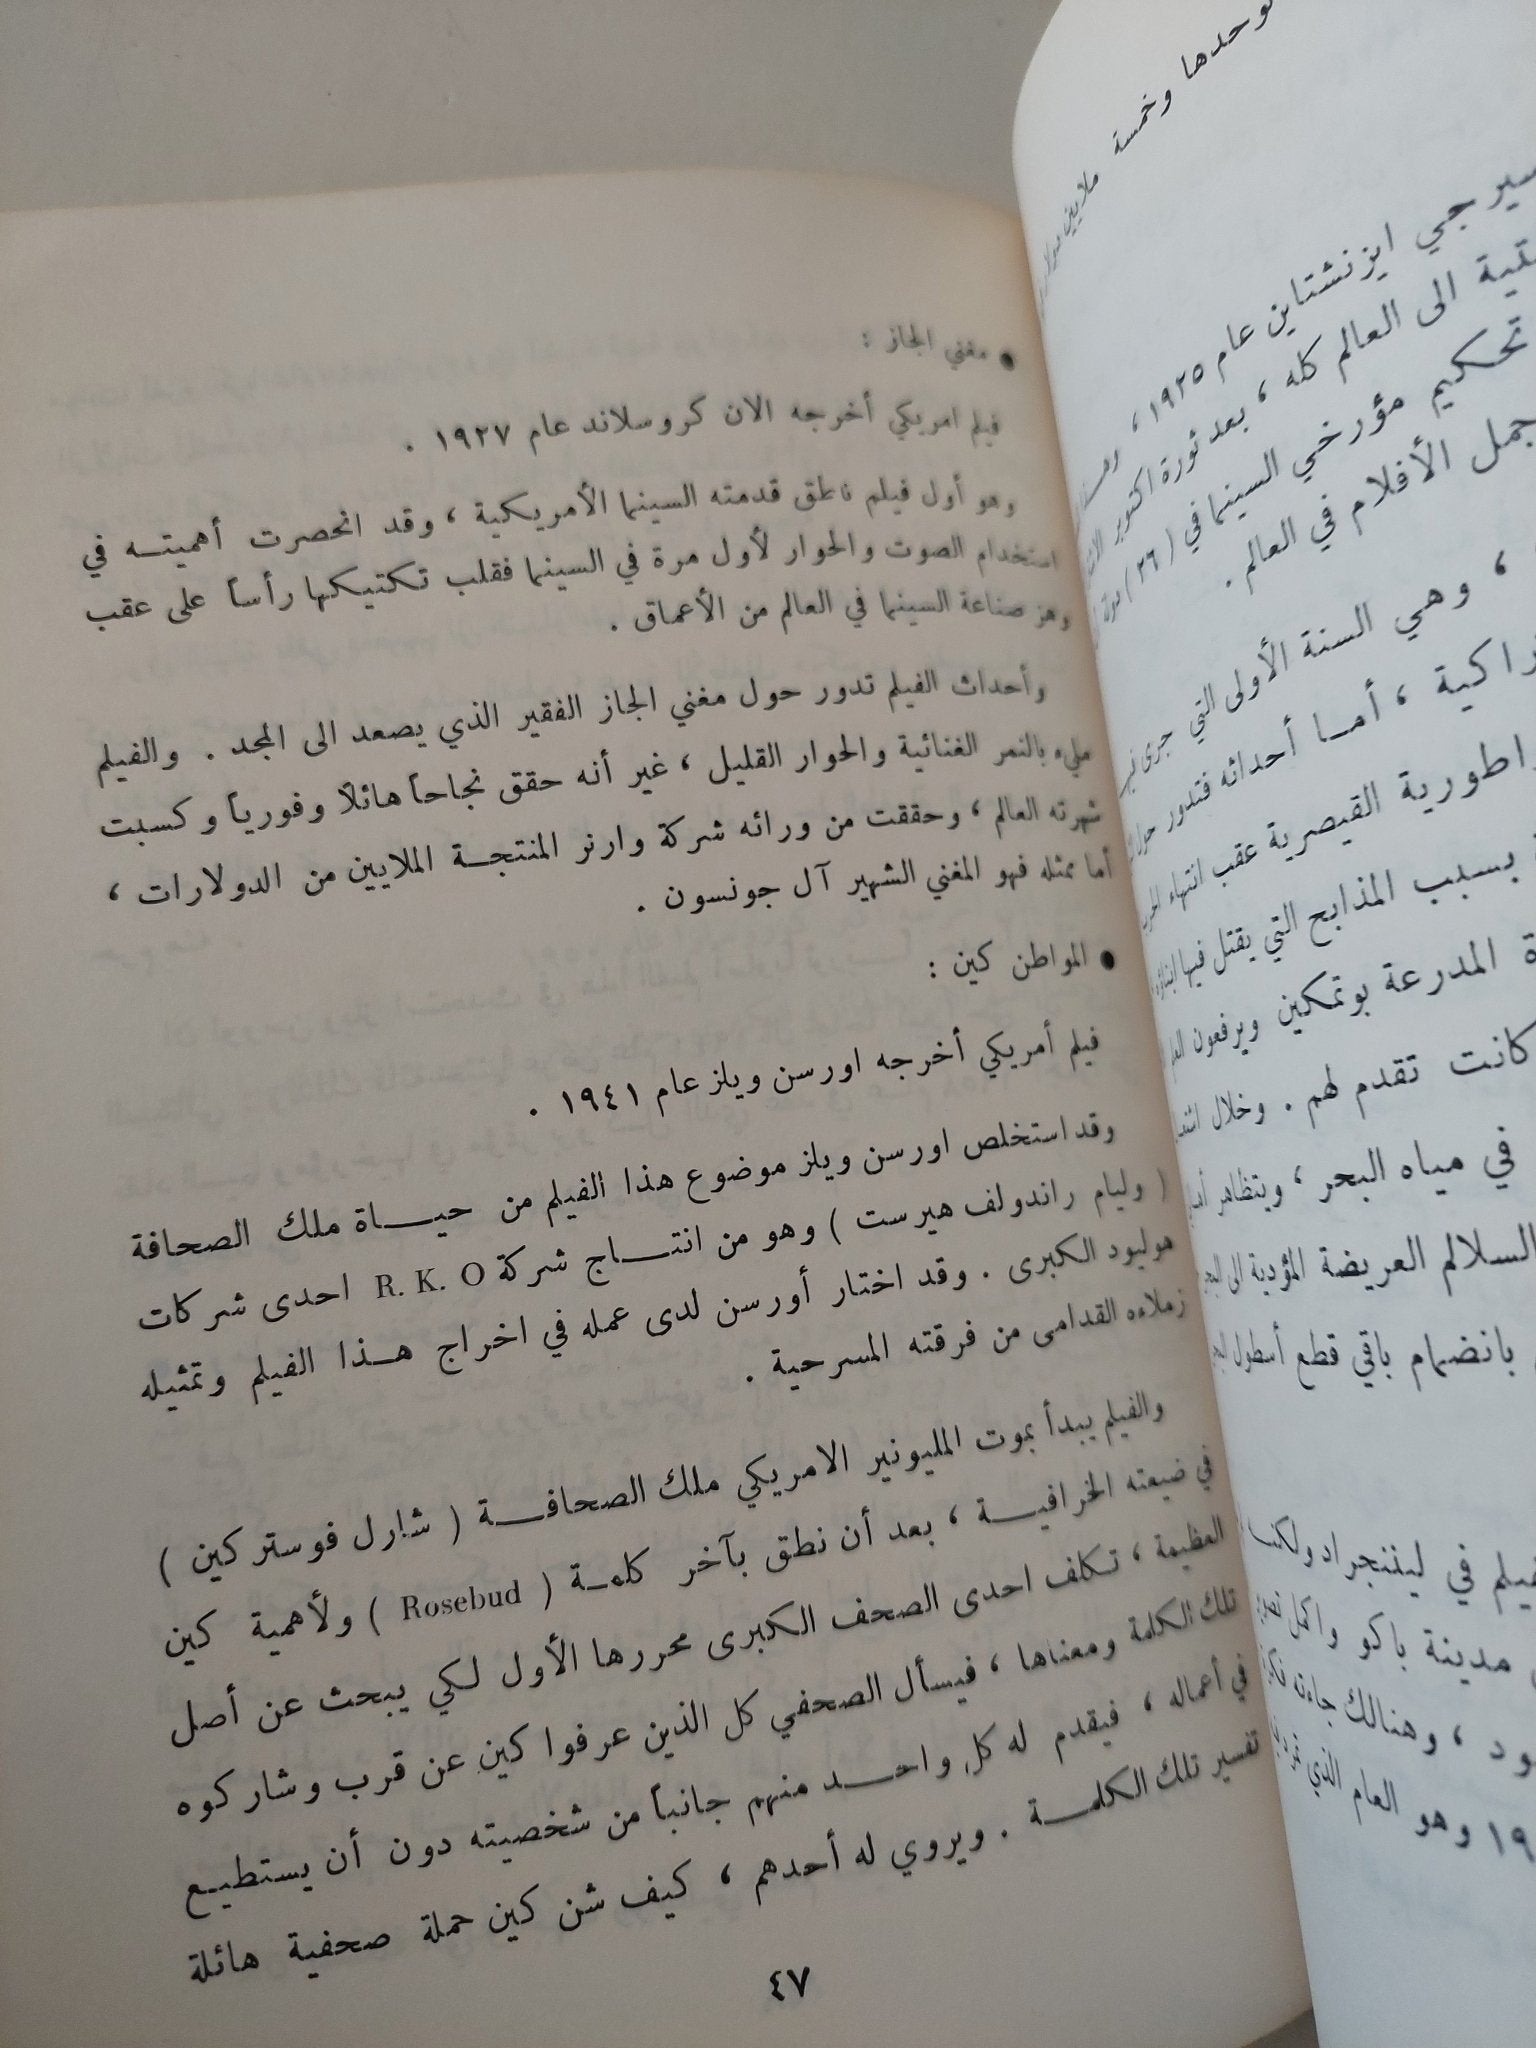 وحدها وخمسة ملايين
سيرجي ايزنشتاين عام ١٩٢٥ ،
الى العالم كله ، بعد ثورة اكتوبر
تحكيم مؤرخي السينما في ( ٢٦ )
الأفلام في العالم .
، وهي السنة الأولى التي جرى
، أما أحداثه فتدور
القيصرية عقب انتهاء الحرب
بسبب المذابح التي يقتل فيها
المدرعة بوتمكين ويرفعون
كانت تقدم لهم . وخلال
في مياه البحر ، ويتظاهر
السلالم العريضة المؤدية الى
بانضمام باقي قطع أسطول
في ليننجراد
مدينة باكو
، وهنالك جاءته
وهو العام الذي
● مغني الجاز :
فيلم امريكي أخرجه الان كروسلاند عام ١٩٢٧ .
وهو أول فيلم ناطق قدمته السينما الأمريكية ، وقد انحصرت أهميتـه في
استخدام الصوت والحوار لأول مرة في السينما فقلب تكتيكها رأساً على عقب
وهز صناعة السينما في العالم من الأعماق .
وأحداث الفيلم تدور حول مغني الجاز الفقير الذي يصعد الى المجد . والفيلم
مليء بالنمر الغنائية والحوار القليل ، غير أنه حقق نجاحاً هائلاً وفورياً وكسبت
شهرته العالم ، وحققت من ورائه شركة وارنر المنتجـة الملايين من الدولارات ،
أما ممثله فهو المغني الشهير آل جونسون .
● المواطن كين :
فيلم أمريكي أخرجه اورسن ويلز عام ١٩٤١ .
وقد استخلص اورسن ويلز موضوع هذا الفيلم من حيـاة ملك الصحافة
( وليام راندولف هيرست ) وهو من انتـاج شركة R. K. O احدى شركات
هوليود الكبرى . وقد اختار أورسن لدى عمله في اخراج هـذا الفيلم وتمثيله
زملاءه القدامى من فرقته المسرحية .
والفيلم يبدأ بموت المليونير الامريكي ملك الصحافـة ( شارل فوستر كين )
في ضيعته الخرافيـة ، بعد أن نطق بآخر كلمـة ( Rosebud ) ولأهمية كين
العظيمة ، تكلف احدى الصحف الكبرى محررها الأول لكي يبحث عن أصل
تلك الكلمة ومعناها ، فيسأل الصحفي كل الذين عرفوا كين عن قرب وشاركوه
في أعماله ، فيقدم له كل واحـد منهم جانباً من شخصيته دون أن يستطيـع
تفسير تلك الكلمـة . ويروي له أحدهم ، كيف شن كين حملة صحفية هائلة
٤٧